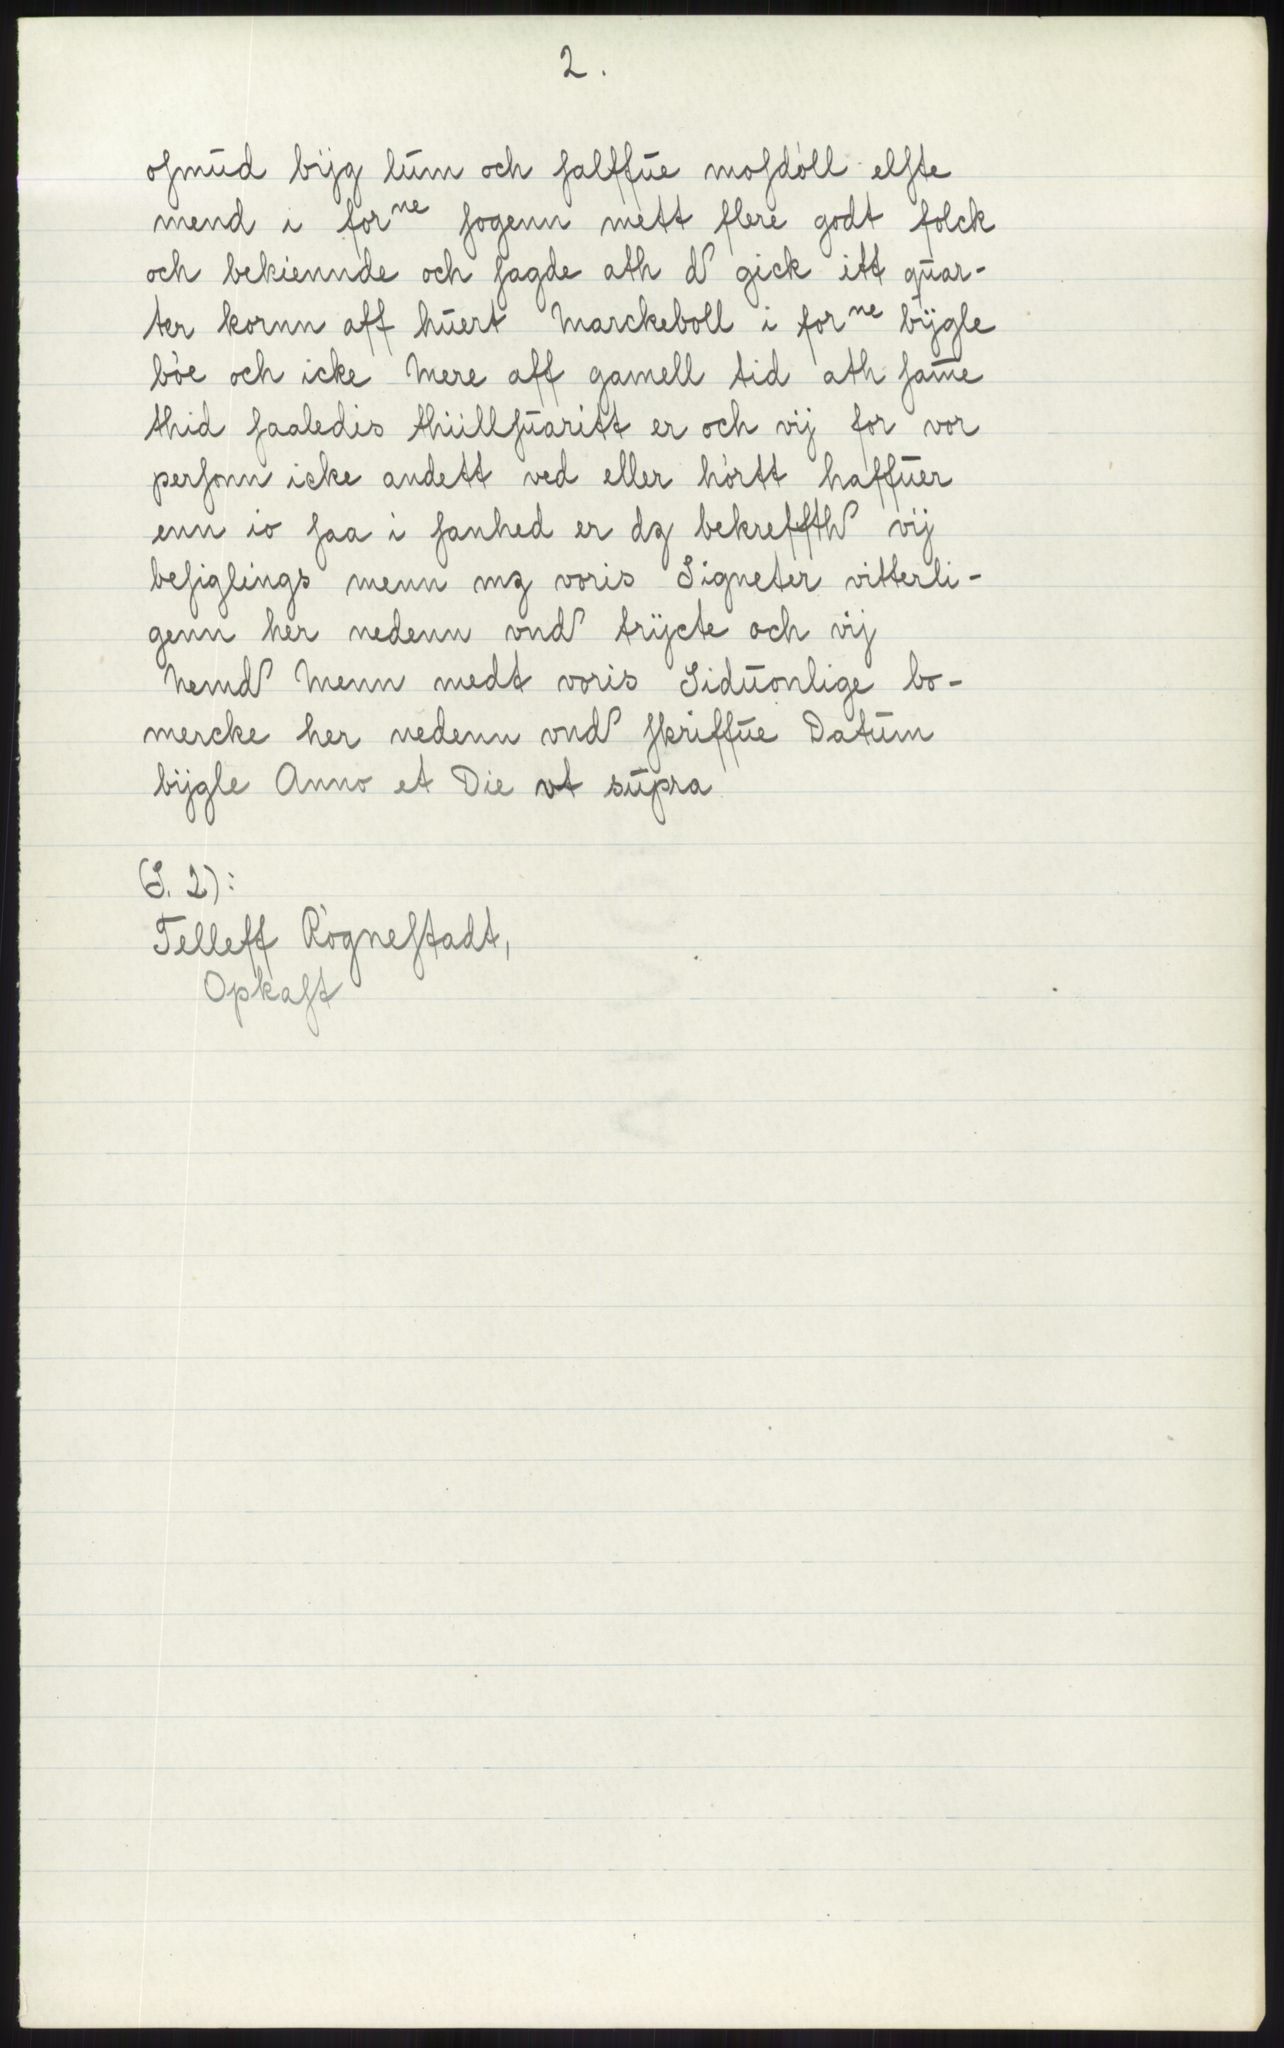 2.
osmŭd bijg lŭm och salffŭe mosdòll elste
mend i forne sogenn mett flere godt folck
och bekiennde och sagde ath d gick itt qŭar-
ter kornn aff hŭert Marckeboll i forne bijgle
bòe och icke Mere aff gamell tid ath same
thid saaledis thiillsŭaritt er och vij for vor
personn icke andett ved eller hòrtt haffŭer
enn io saa i sanhed er dz bekreffth vij
besiglings menn mz voris Signeter vitterli-
genn her nedenn vnd trijcte och vij
Nemd Menn medt voris Sidŭonlige bo-
mercke her nedenn vnd skriffŭe Datŭm
bijgle Anno et Die vt sŭpra
(S. 2):
Telleff Rògnestadt,
Opkast